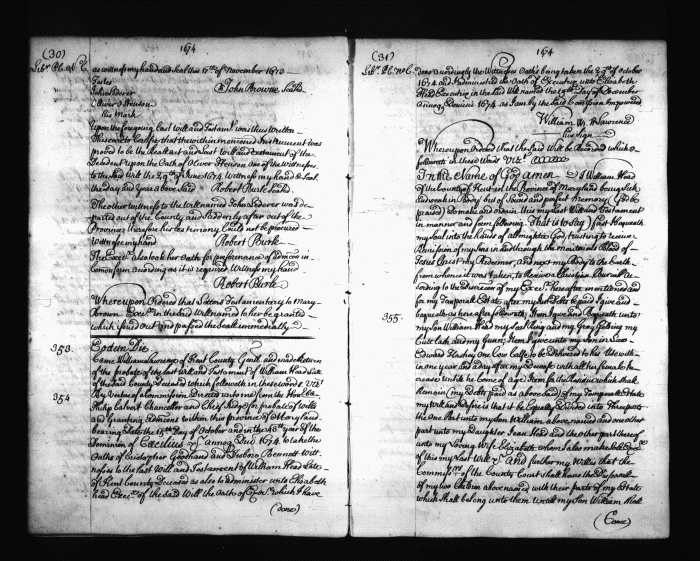 (30) 1674
Lib.r P.C. N.o C.
as witness my hand and Seal this 17th of November 1673
Testes John Browne Seale
John Lederer
Oliver Henson
his Mark
Upon the foregoing last will and Testam.t was thus written
These are to Certifie that the within menconed Instrument was
proved to be the Reall act and Last Will and Testament of the
Dec'd upon the Oath of Oliver Henson one of the Wittnesses
to the Said Will the 29th of June 1674 Wittness my hand & Seal
the day and Year above Said Robert Burle Seale
The other wittness to the Will named John Lederer was de=
parted out of the County and Suddenly after out of the
Province therefore his testimony Could not be procured
Wittness my hand Robert Burle
The Exec.x also took her Oath for performance of
Common form according as it is required Wittness my hand
Robert Burle
Whereupon Ordered that Letters Testamentary to Mary
Brown Exec.x in the Said Will named to her be granted
which faced out and passed the Seale immediately
353.
Eodem Die.
Came William Lawrence of Kent County Gent. and made Return
of the probate of the last Will and Testament of William Head Late
of the Said County Deceased which followeth in these words Viz.t
354
By Virtue of a Commission Directed unto me from the Hon.ble
Philip Calvert Chancellor and Chief Judge for probate of wills
and Granting Admcons within this province of Maryland
bearing date the 15th day of October and in the 43.d Year of the
Dominion of Cæcilius &c Annoq. Dni 1674 to take the
Oaths of Cristopher Goodhand and Disborn Bennett Witt=
nesses to the last Will and Testament of William Head Late
of Kent County Deceased as also to administer unto Elizabeth
head Exec.x of the Said Will the Oath of Exec.x which I have
(done)
(31) 164
Lib.r P.C. N.o C.
done accordingly the Wittnesses Oaths being taken the of October
1674 and Administred the Oath of Executrix unto Elizabeth
Head Executrix in the Said Will named the day of December
Annoq. Domini 1674 as I am by the Said Comission Impowered
William W. Lawrence
his Sign
Whereupon Ordered that the Said Will be Recorded which
followeth in these Words Viz.t
In the Name of God amen I William Head
of the County of Kent in the Province of Maryland being Sick
and weak in Body but of Sound and perfect Memory (God be
praised) do make and ordain this my Last Will and Testament
in manner and form following That is to Say) first I bequeath
my Soul into the hands of almighty God trusting to receive
Remission of my Sins in and through the meritorious Blood of
Jesus Christ my Redeemer, and next my Body to the Earth
from whence it was taken, to Receive a Christian Buriall Ac=
cording to the discrecon of my Exec.x hereafter mentioned and
for my Temporall Estate after my just Debts be paid I give and
bequeath as here after followeth Item I give and Bequeath unto
355.
my Son William Head my Seal Ring and my Gray Gelding my
Cutt lash and my Gunn, Item I give unto my Son in Law
Edward Fleeling One Cow Calfe to be Delivered to his Use with=
in one year and a day after my Decease with all his female In=
crease untill he Come of Age Item for the Residue which Shall
Remain (my Debts paid as abovesaid) of my Temporall Estate
my Will and desire is that it be Equally Devided into Three parts
the One Part unto my Son William above named and one other
part unto my Daughter Jean Head and the other part thereof
unto my Loving Wife Elizabeth whom I also make Sole Exec.x
of this my Last Will &c And further my Will is that the
Commiss.rs of the County Court Shall have the Disposall
of my two Children above named with their parts of my Estate
which Shall belong unto them untill my Son William Head
(Come)